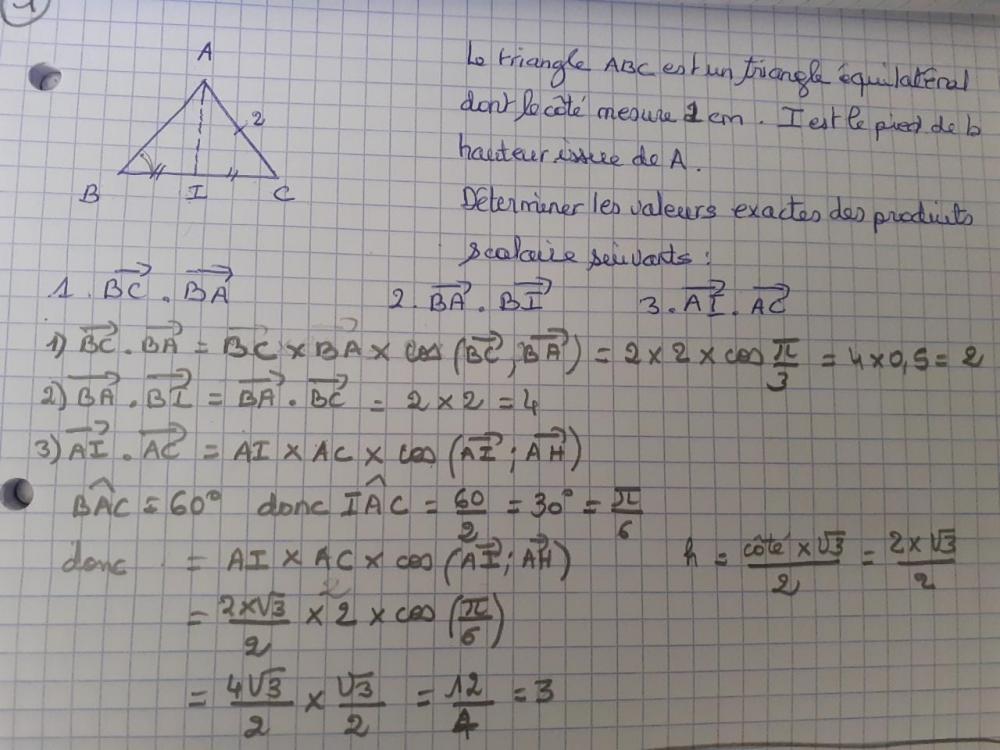 1
A
2
B
I
C
Le triangle ABC est un triangle équilatéral
dont le côté mesure 2 cm. I est le pied de la
hauteur issue de A.
Déterminer les valeurs exactes des produits
scalaire suivants :
1. BC⃗ . BA⃗ 2. BA⃗ . BI⃗ 3. AI⃗ . AC⃗
1) BC⃗ . BA⃗ = BC⃗ × BA⃗ × cos (BC⃗ ; BA⃗) = 2 × 2 × cos π/3 = 4 × 0,5 = 2
2) BA⃗ . BI⃗ = BA⃗ . BC⃗ = 2 × 2 = 4
3) AI⃗ . AC⃗ = AI × AC × cos (AI⃗ ; AH⃗)
BÂC = 60° donc IÂC = 60/2 = 30° = π/6
donc = AI × AC × cos (AI⃗ ; AH⃗) h = côté × √3/2 = 2 × √3/2
= 2×√3/2 × 2 × cos (π/6)
= 4√3/2 × √3/2 = 12/4 = 3